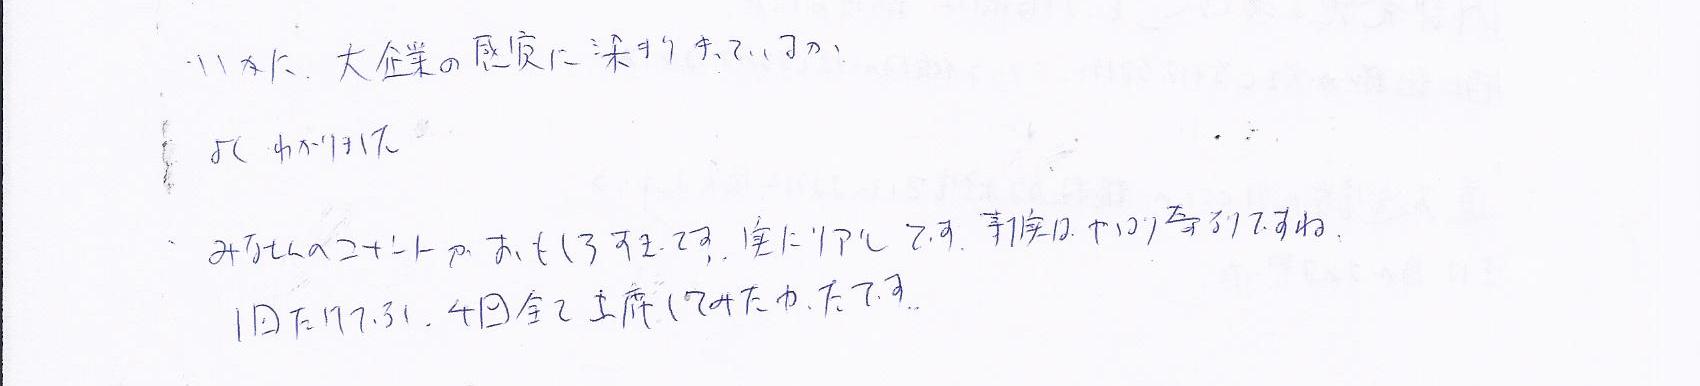 ・いかに、大企業の感覚に染まりきっているか、
よくわかりました
・みなさんのコメントがおもしろすぎです。実にリアルです。事実はやはり奇なりですね。
1回だけでなく、4回全て出席してみたかったです。